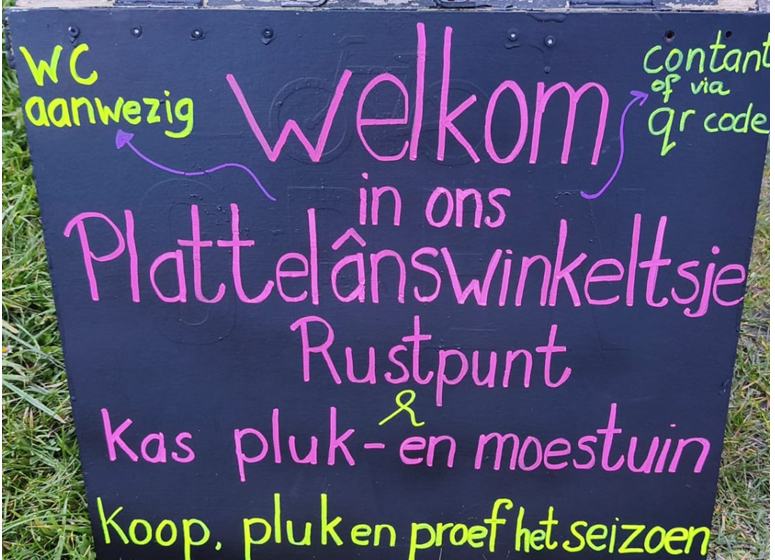 WC
aanwezig
Welkom
contant
of via
qr code
in ons
Plattelânswinkeltsje
Rustpunt
&
Kas pluk-en moestuin
Koop, pluk en proef het seizoen